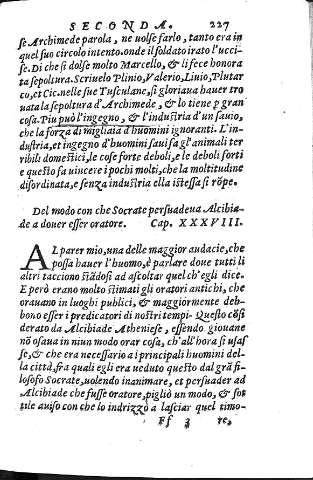 SECONDA. 227
se Archimede parola, ne uolse farlo, tanto era in
quel suo circolo intento. onde il soldato irato l'ucci-
se. Di che si dolse molto Marcello, & li fece honora
ta sepoltura. Scriuelo Plinio, Valerio, Liuio, Plutar
co, et Cic. nelle sue Tusculane, si gloriaua hauer tro
uata la sepoltura d'Archimede, & lo tiene p gran
cosa. Piu può l'ingegno, & l'industria d'un sauio,
che la forza di migliaia d'huomini ignoranti. L'in-
dustria, et ingegno d'huomini saui fa gl'animali ter
ribili domestici, le cose forte deboli, e le deboli forti
e questo fa uincere i pochi molti, che la moltitudine
disordinata, e senza industria ella istessa si rōpe.
Del modo con che Socrate persuadeua Alcibia-
de a douer esser oratore. Cap. XXXVIII.
AL parer mio, una delle maggior audacie, che
possa hauer l'huomo, è parlare doue tutti li
altri tacciono stādosi ad ascoltar quel ch'egli dice.
E però erano molto stimati gli oratori antichi, che
orauano in luoghi publici, & maggiormente deb-
bono esser i predicatori di nostri tempi. Questo cōsi
derato da Alcibiade Atheniese, essendo giouane
nō osaua in niun modo orar cosa, ch'all'hora si usas
se, & che era necessario a i principali huomini del-
la città, fra quali egli era ueduto questo dal grā fi-
losofo Socrate, uolendo inanimare, et persuader ad
Alcibiade che fusse oratore, pigliò un modo, & sot
tile auiso con che lo indrizzò a lasciar quel timo-
Ff 3 re,